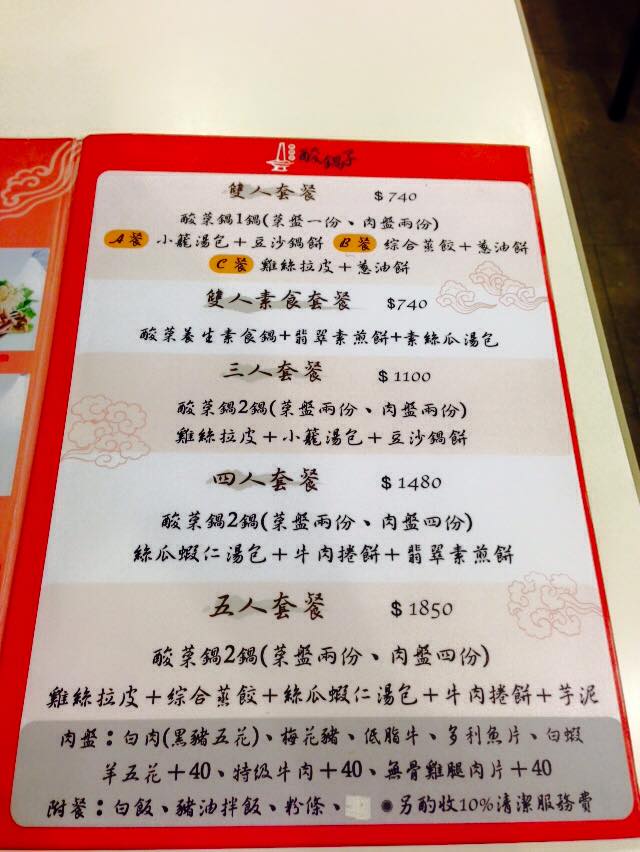 酸鍋子
雙人套餐 $740
酸菜鍋1鍋(菜盤一份、肉盤兩份)
A餐 小籠湯包+豆沙鍋餅 B餐 綜合蒸餃+蔥油餅
C餐 雞絲拉皮+蔥油餅
雙人素食套餐 $740
酸菜養生素食鍋+翡翠素煎餅+素絲瓜湯包
三人套餐 $1100
酸菜鍋2鍋(菜盤兩份、肉盤兩份)
雞絲拉皮+小籠湯包+豆沙鍋餅
四人套餐 $1480
酸菜鍋2鍋(菜盤兩份、肉盤四份)
絲瓜蝦仁湯包+牛肉捲餅+翡翠素煎餅
五人套餐 $1850
酸菜鍋2鍋(菜盤兩份、肉盤四份)
雞絲拉皮+綜合蒸餃+絲瓜蝦仁湯包+牛肉捲餅+芋泥
肉盤:白肉(黑豬五花)、梅花豬、低脂牛、多利魚片、白蝦
羊五花+40、特級牛肉+40、無骨雞腿肉片+40
附餐:白飯、豬油拌飯、粉條、 ●另酌收10%清潔服務費